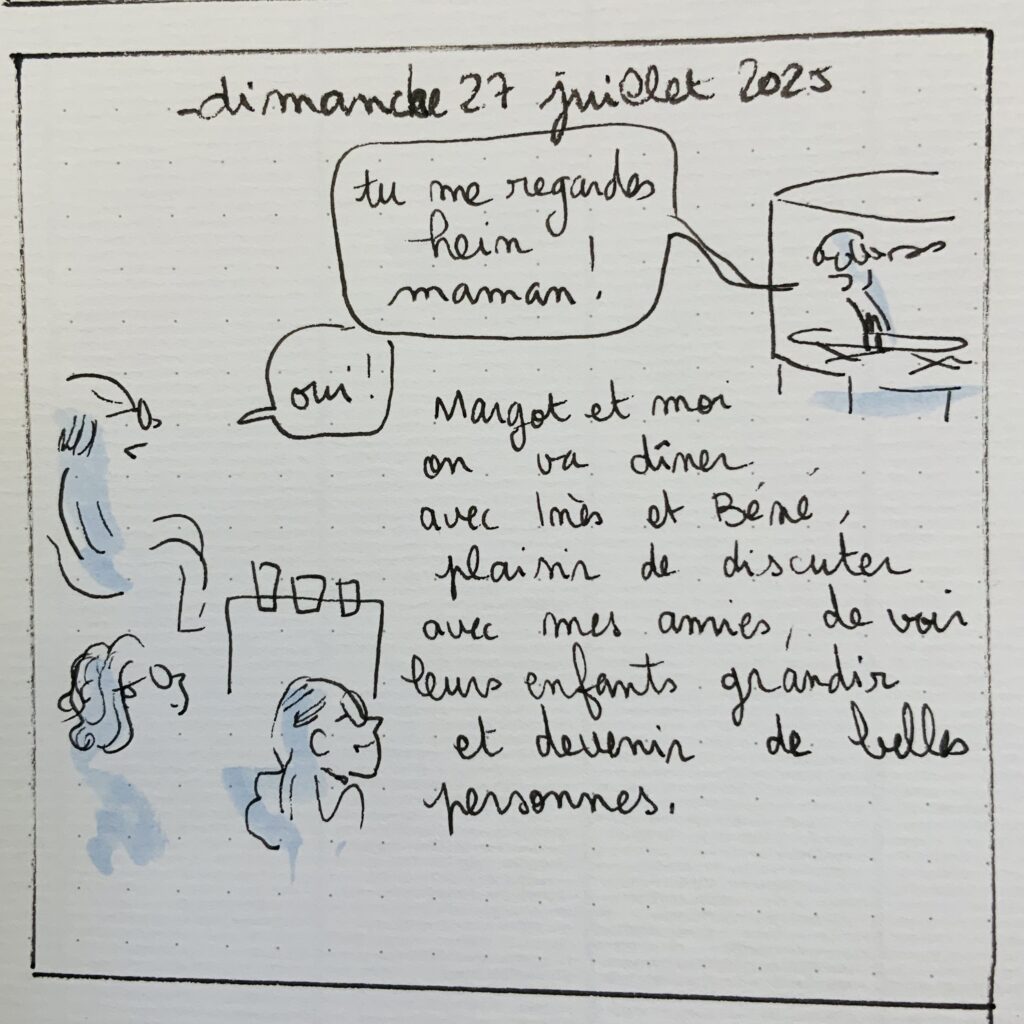 dimanche 27 juillet 2025
tu me regardes
hein
maman !
oui !
Margot et moi
on va dîner
avec Inès et Béné,
plaisir de discuter
avec mes amies, de voir
leurs enfants grandir
et devenir de belles
personnes.